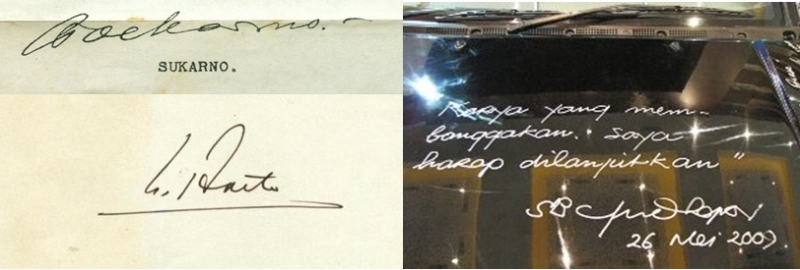 Soekarno.
SUKARNO.
"Karya yang mem-
banggakan. Saya
harap dilanjutkan"
SB Yudhoyono
26 Mei 2009